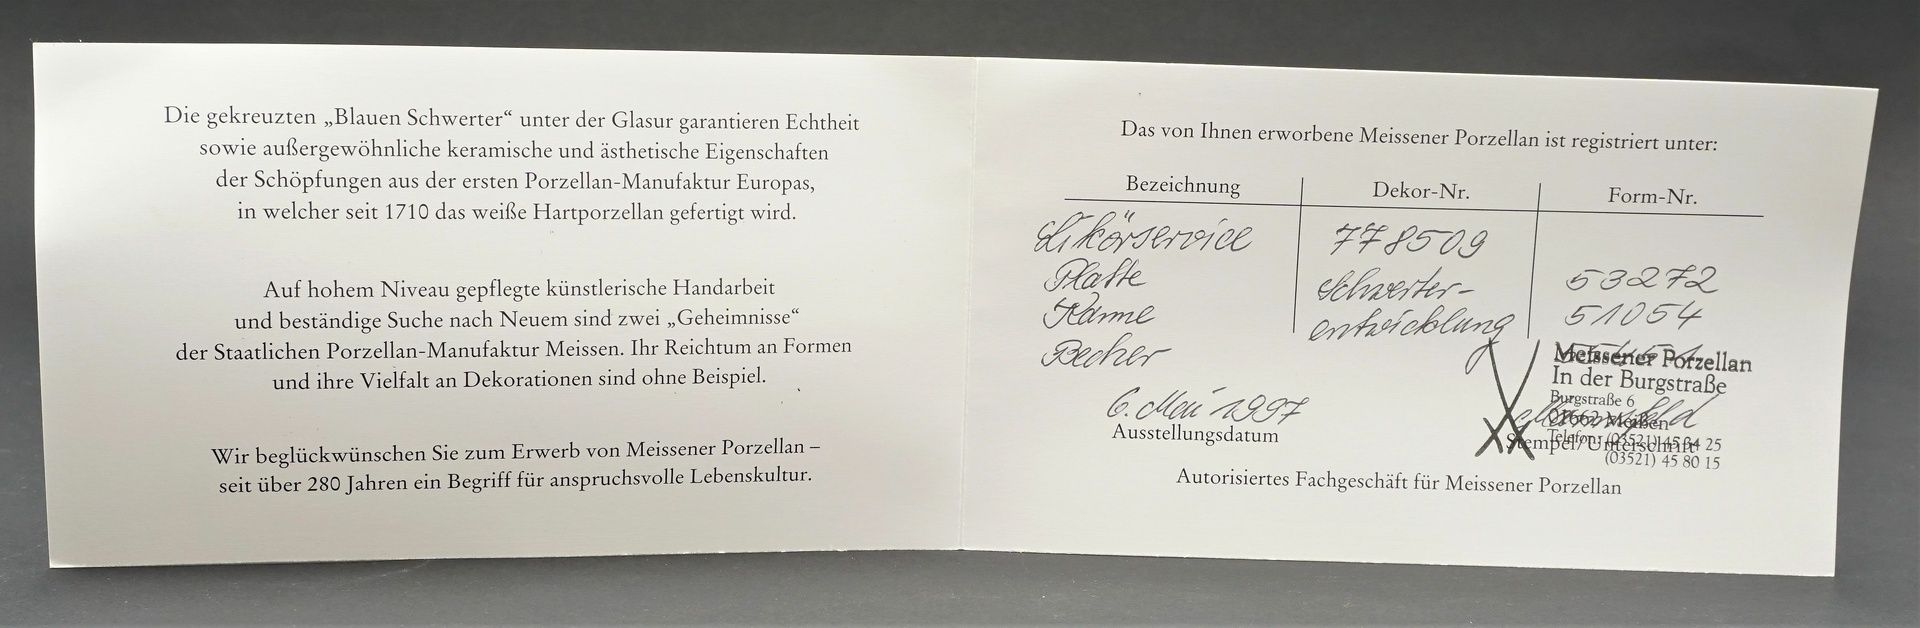 Die gekreuzten „Blauen Schwerter“ unter der Glasur garantieren Echtheit
sowie außergewöhnliche keramische und ästhetische Eigenschaften
der Schöpfungen aus der ersten Porzellan-Manufaktur Europas,
in welcher seit 1710 das weiße Hartporzellan gefertigt wird.
Auf hohem Niveau gepflegte künstlerische Handarbeit
und beständige Suche nach Neuem sind zwei „Geheimnisse“
der Staatlichen Porzellan-Manufaktur Meissen. Ihr Reichtum an Formen
und ihre Vielfalt an Dekorationen sind ohne Beispiel.
Wir beglückwünschen Sie zum Erwerb von Meissener Porzellan –
seit über 280 Jahren ein Begriff für anspruchsvolle Lebenskultur.
Das von Ihnen erworbene Meissener Porzellan ist registriert unter:
Bezeichnung Dekor-Nr. Form-Nr.
Likörservice 778509
Platte Schwerter- 53272
Kanne entwicklung 51054
Becher
Meissener Porzellan
In der Burgstraße
Burgstraße 6
01662 Meißen
Telefon: (03521) 45
(03521) 45 80 15
6. Mai 1997
Ausstellungsdatum
Stempel/Unterschrift
Autorisiertes Fachgeschäft für Meissener Porzellan